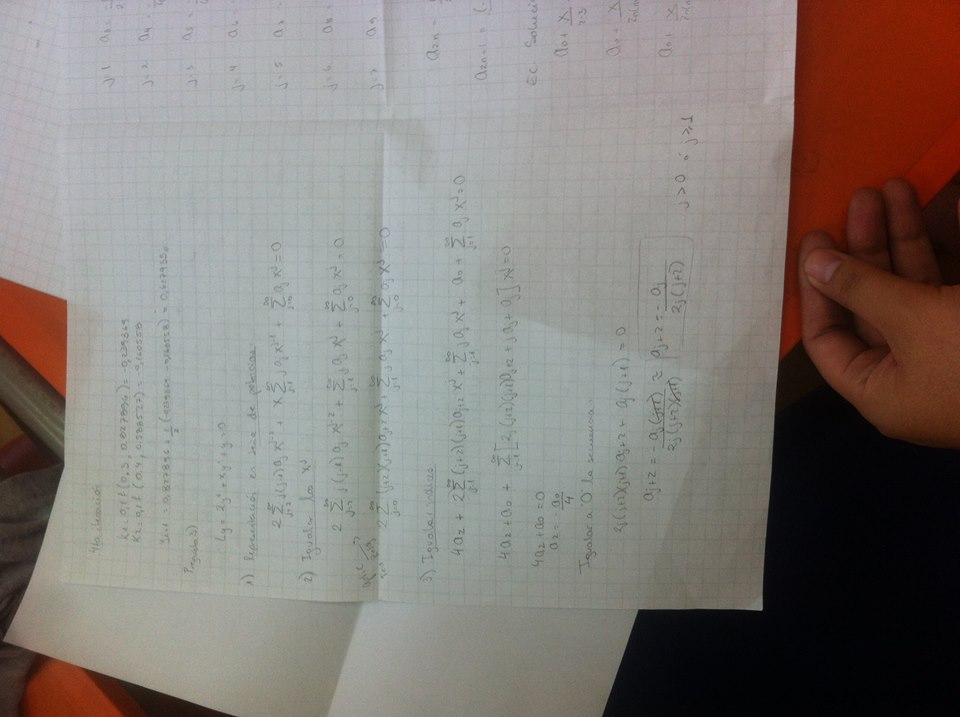 4ta iteración
K1 = 0,1 f (0,3 , 0,827896) = -0,239369
Pregunta 3)
Ly = 2y'' + xy' + y = 0
1) Representación en serie de potencias
2 ∑_{j=2}^{∞} j(j-1) a_j x^{j-2} + x ∑_{j=1}^{∞} j a_j x^{j-1} + ∑_{j=0}^{∞} a_j x^j = 0
2) Igualar los x^j
2 ∑_{j=2}^{∞} j(j-1) a_j x^{j-2} + ∑_{j=1}^{∞} j a_j x^j + ∑_{j=0}^{∞} a_j x^j = 0
2 ∑_{j=0}^{∞} (j+2)(j+1) a_{j+2} x^j + ∑_{j=1}^{∞} j a_j x^j + ∑_{j=0}^{∞} a_j x^j = 0
3) Igualar índices
4a_2 + 2 ∑_{j=1}^{∞} (j+2)(j+1) a_{j+2} x^j + ∑_{j=1}^{∞} j a_j x^j + a_0 + ∑_{j=1}^{∞} a_j x^j = 0
4a_2 + a_0 + ∑_{j=1}^{∞} [2j(j+2)(j+1) a_{j+2} + j a_j + a_j] x^j = 0
4a_2 + a_0 = 0
a_2 = -a_0/4
Igualar a "0" la secuencia:
2j(j+2)(j+1) a_{j+2} + a_j(j+1) = 0
a_{j+2} = -a_j(j+1) / 2j(j+2)(j+1) ≈ a_{j+2} = -a_j / 2j(j+2)
j > 0 ó j ≥ 1
j=1 a_3 =
j=2 a_4 =
j=3 a_5 =
j=4 a_6 =
j=5 a_7
j=6 a_8 =
j=7 a_9
a_{2n}
a_{2n+1} =
EC. Soluci
a_0 + x/2·3